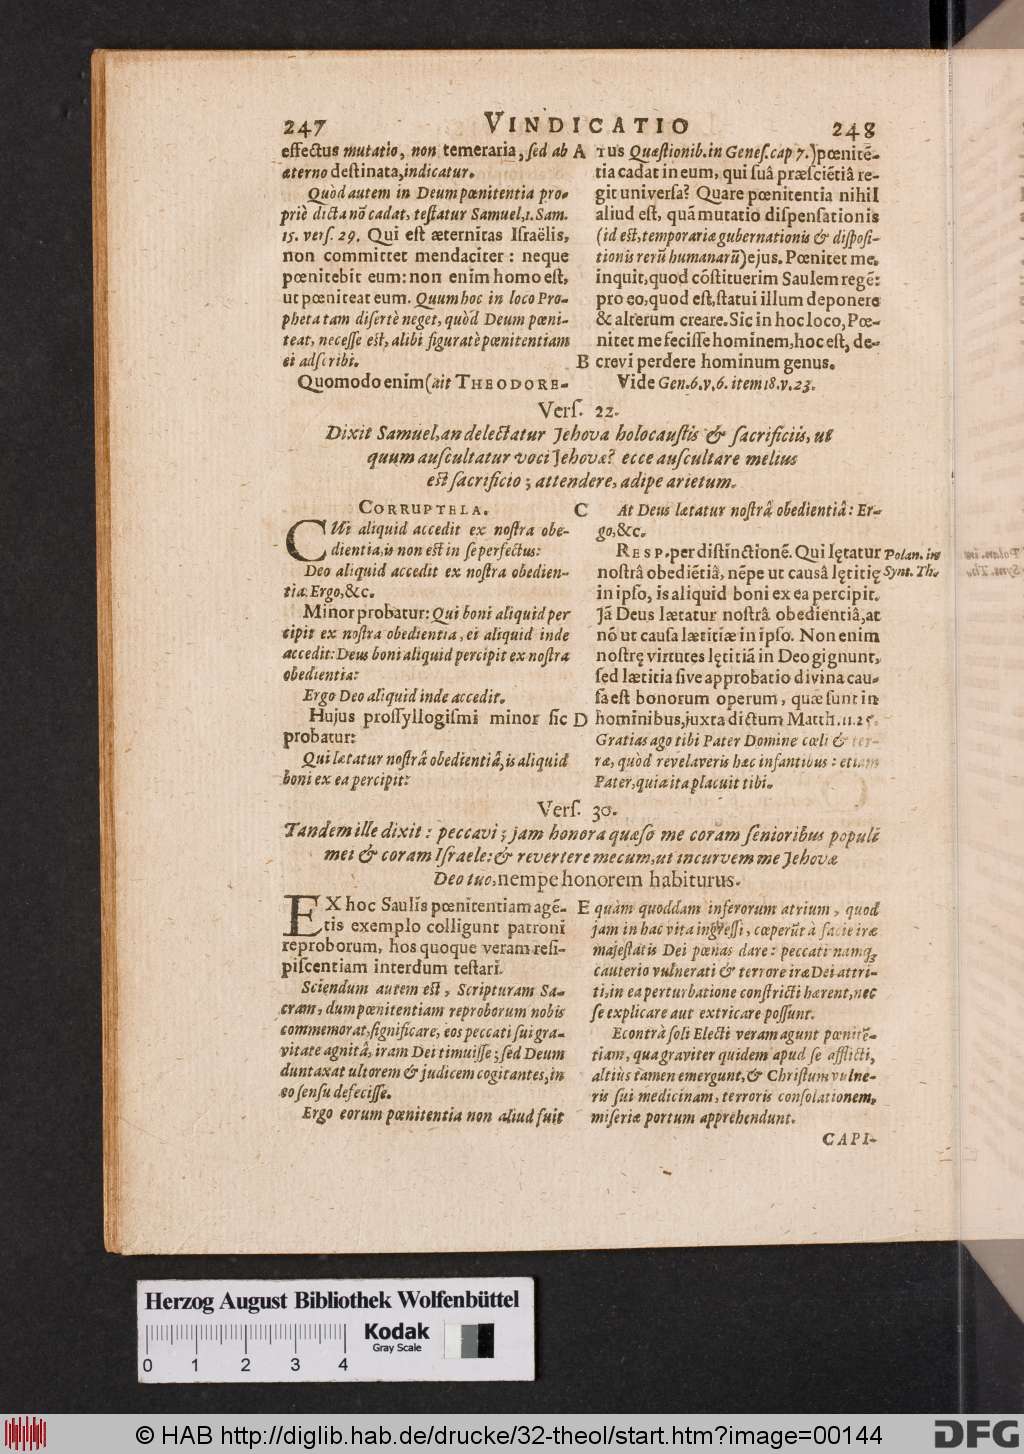 247 VINDICATIO 248
effectus mutatio, non temeraria, sed ab
æterno destinata, indicatur.
Quòd autem in Deum pœnitentia pro-
priè dicta nõ cadat, testatur Samuel, 1. Sam.
15. vers. 29. Qui est æternitas Israëlis,
non committet mendaciter: neque
pœnitebit eum: non enim homo est,
ut pœniteat eum. Quum hoc in loco Pro-
pheta tam disertè neget, quòd Deum pœni-
teat, necesse est, alibi figuratè pœnitentiam
ei adscribi.
Quomodo enim (ait THEODORE-
A
TUS Quæstionib. in Genes. cap 7.) pœnitẽ-
tia cadat in eum, qui suâ præsciẽtiâ re-
git universa? Quare pœnitentia nihil
aliud est, quã mutatio dispensationis
(id est, temporariæ gubernationis & disposi-
tionis rerũ humanarũ) ejus. Pœnitet me,
inquit, quod cõstituerim Saulem regẽ:
pro eo, quod est, statui illum deponere
& alterum creare. Sic in hoc loco, Pœ-
nitet me fecisse hominem, hoc est, de-
B
crevi perdere hominum genus.
Vide Gen. 6. v. 6. item 18. v. 23.
Vers. 22.
Dixit Samuel, an delectatur Jehova holocaustis & sacrificiis, ut
quum auscultatur voci Jehovæ? ecce auscultare melius
est sacrificio; attendere, adipe arietum.
CORRUPTELA.
CUi aliquid accedit ex nostra obe-
dientia, is non est in se perfectus:
Deo aliquid accedit ex nostra obedien-
tia: Ergo, &c.
Minor probatur: Qui boni aliquid per
cipit ex nostra obedientia, ei aliquid inde
accedit: Deus boni aliquid percipit ex nostra
obedientia:
Ergo Deo aliquid inde accedit.
Hujus prossyllogismi minor sic
probatur:
Qui lætatur nostrâ obedientiâ, is aliquid
boni ex ea percipit:
C
At Deus lætatur nostrâ obedientiâ: Er-
go, &c.
RESP. per distinctionẽ. Qui lętatur
nostrâ obediẽtiâ, nẽpe ut causâ lętitię
in ipso, is aliquid boni ex ea percipit.
Jã Deus lætatur nostrâ obedientiâ, at
nõ ut causa lætitiæ in ipso. Non enim
nostrę virtutes lętitiã in Deo gignunt,
sed lætitia sive approbatio divina cau-
sa est bonorum operum, quæ sunt in
D
hominibus, juxta dictum Matth. 11. 25.
Gratias ago tibi Pater Domine cœli & ter-
ræ, quòd revelaveris hæc infantibus: etiam
Pater, quia ita placuit tibi.
Polan. in
Synt. Th.
Vers. 30.
Tandem ille dixit: peccavi; jam honora quæso me coram senioribus populi
mei & coram Israele: & revertere mecum, ut incurvem me Jehovæ
Deo tuo, nempe honorem habiturus.
EX hoc Saulis pœnitentiam agẽ-
tis exemplo colligunt patroni
reproborum, hos quoque veram resi-
piscentiam interdum testari.
Sciendum autem est, Scripturam Sa-
cram, dum pœnitentiam reproborum nobis
commemorat, significare, eos peccati sui gra-
vitate agnitâ, iram Dei timuisse; sed Deum
duntaxat ultorem & judicem cogitantes, in
eo sensu defecisse.
Ergo eorum pœnitentia non aliud fuit
E
quàm quoddam inferorum atrium, quod
jam in hac vita ingressi, cœperũt à facie iræ
majestatis Dei pœnas dare: peccati namq;
cauterio vulnerati & terrore iræ Dei attri-
ti, in ea perturbatione constricti hærent, nec
se explicare aut extricare possunt.
Econtrà soli Electi veram agunt pœnitẽ-
tiam, qua graviter quidem apud se afflicti,
altiùs tamen emergunt, & Christum vulne-
ris sui medicinam, terroris consolationem,
miseriæ portum apprehendunt.
CAPI-
Herzog August Bibliothek Wolfenbüttel
0 1 2 3 4
Kodak
Gray Scale
© HAB http://diglib.hab.de/drucke/32-theol/start.htm?image=00144
DFG